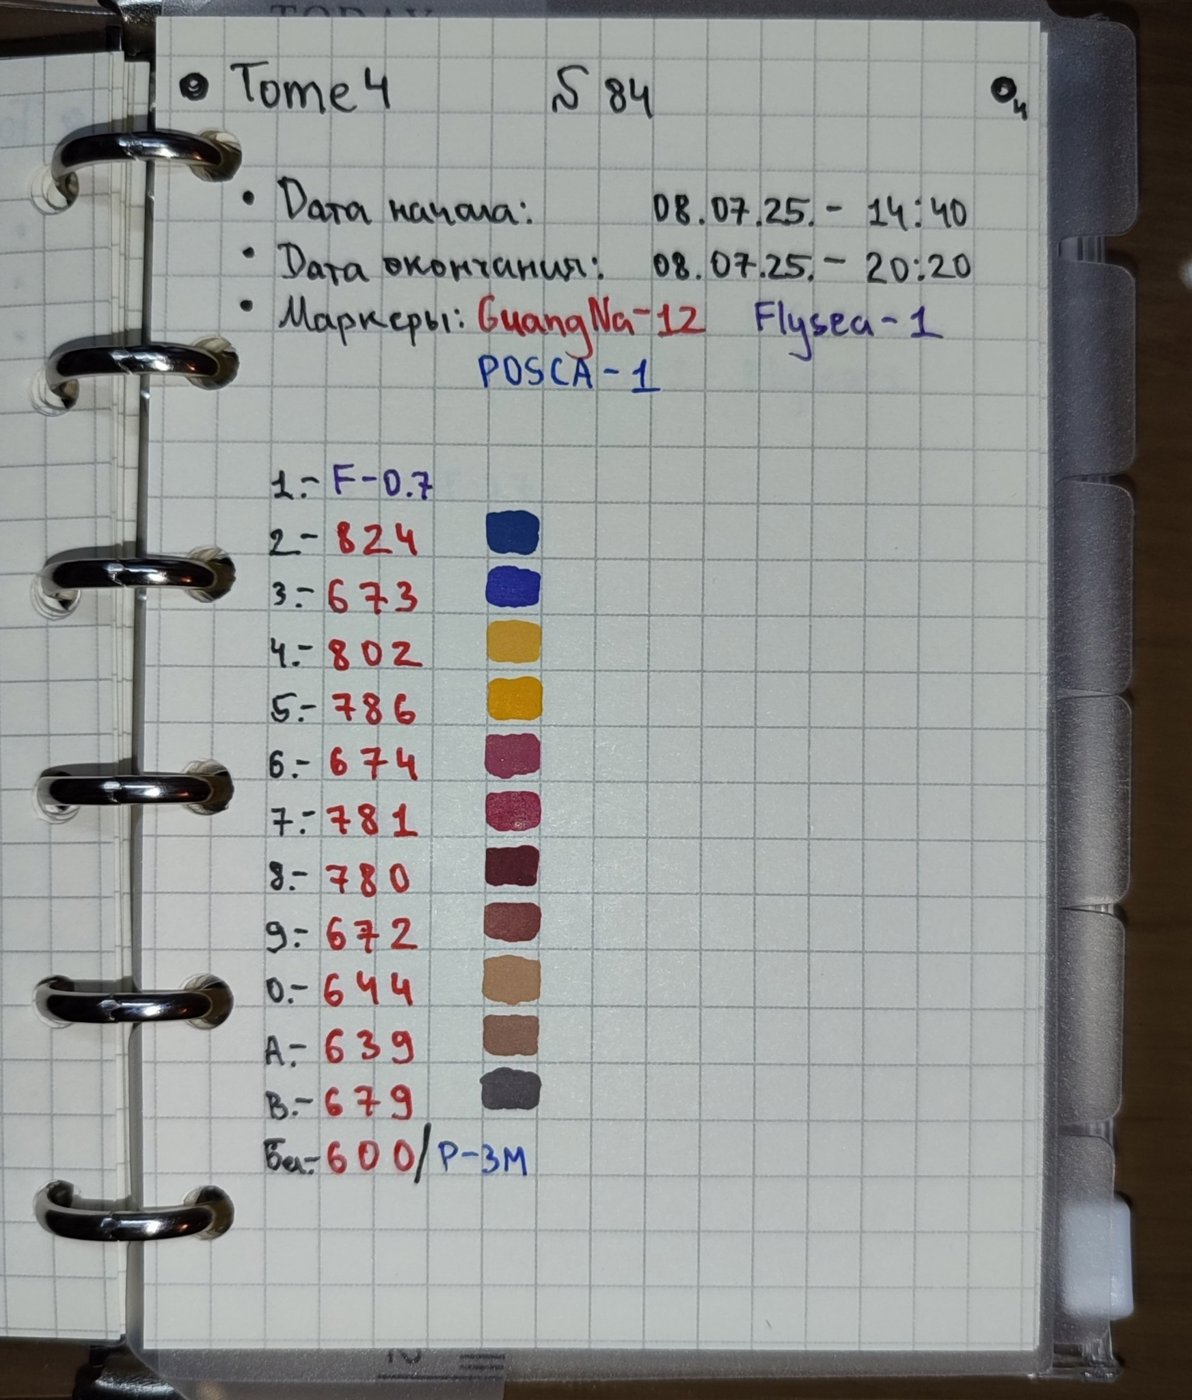 Tome 4 S 84
• Дата начала: 08.07.25.- 14:40
• Дата окончания: 08.07.25.- 20:20
• Маркеры: GuangNa-12 Flysea-1
POSCA-1
1.- F-0.7
2- 824
3.- 673
4.- 802
5.- 786
6.- 674
7.- 781
8.- 780
9.- 672
0.- 644
A.- 639
B.- 679
Бел.- 600/P-3M